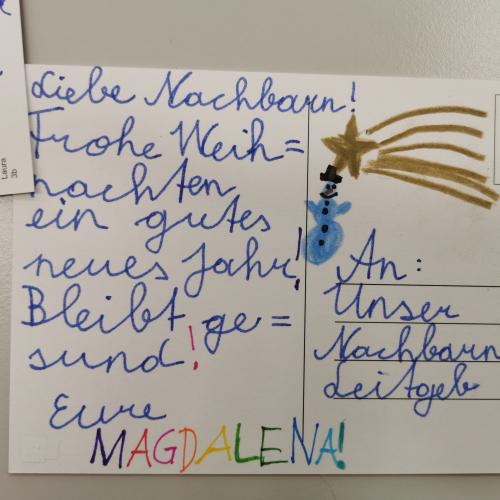 Laura
3b
Liebe Nachbarn!
Frohe Weih=
nachten
ein gutes
neues Jahr!
Bleibt ge=
sund!
Eure
MAGDALENA!
An:
Unser
Nachbarn
Leitgeb